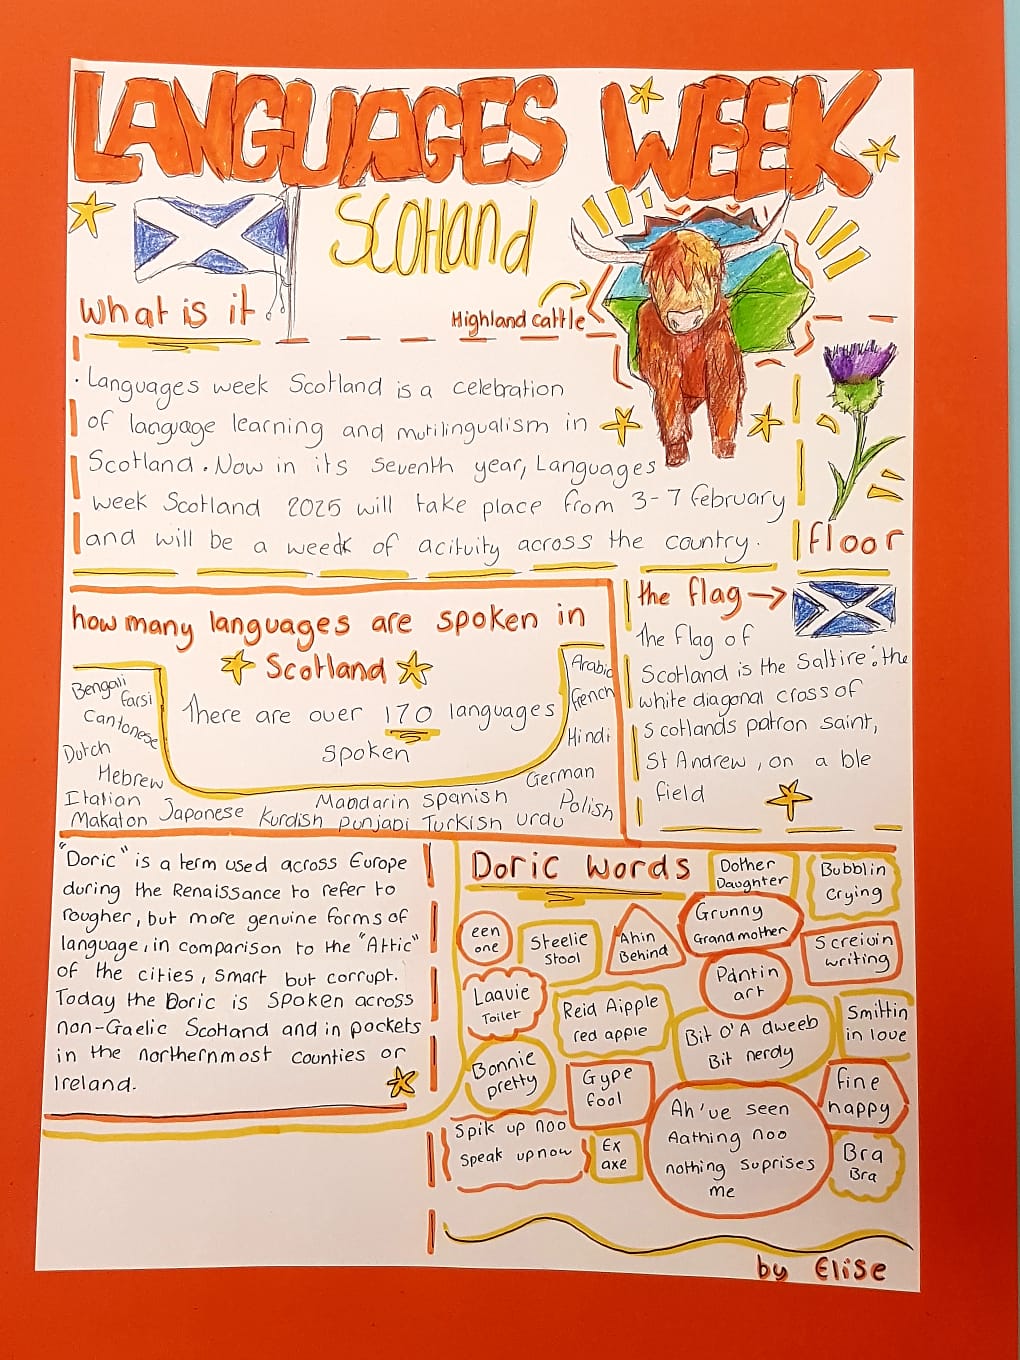 LANGUAGES WEEK
Scotland
Highland cattle
what is it
. Languages week Scotland is a celebration
of language learning and mutilingualism in
Scotland. Now in its seventh year, Languages
week Scotland 2025 will take place from 3-7 february
and will be a weedk of acituity across the country.
floor
how many languages are spoken in
Scotland
There are over 170 languages
spoken
Bengali
farsi
Cantonese
Dutch
Hebrew
Italian
Makaton
Japonese
Kurdish
Mandarin
punjabi
spanish
Turkish
urdu
German
Polish
Hindi
french
Arabic
the flag →
the flag of
Scotland is the Saltire: the
white diagonal cross of
scotlands patron saint,
St Andrew, on a ble
field
"Doric" is a term used across Europe
during the Renaissance to refer to
rougher, but more genuine forms of
language, in comparison to the "Attic"
of the cities, smart but corrupt.
Today the Doric is spoken across
non-Gaelic Scotland and in pockets
in the northernmost counties or
Ireland.
Doric words
Dother
Daughter
Bubblin
crying
een
one
Steelie
Stool
Ahin
Behind
Grunny
Grandmother
Screivin
writing
Laavie
Toilet
Reid Aipple
red apple
Pantin
art
Bit O'A dweeb
Bit nerdy
Smittin
in love
Bonnie
pretty
Gype
fool
fine
happy
Spik up noo
Speak up now
Ex
axe
Ah've seen
Aathing noo
nothing suprises
me
Bra
Bra
by Elise